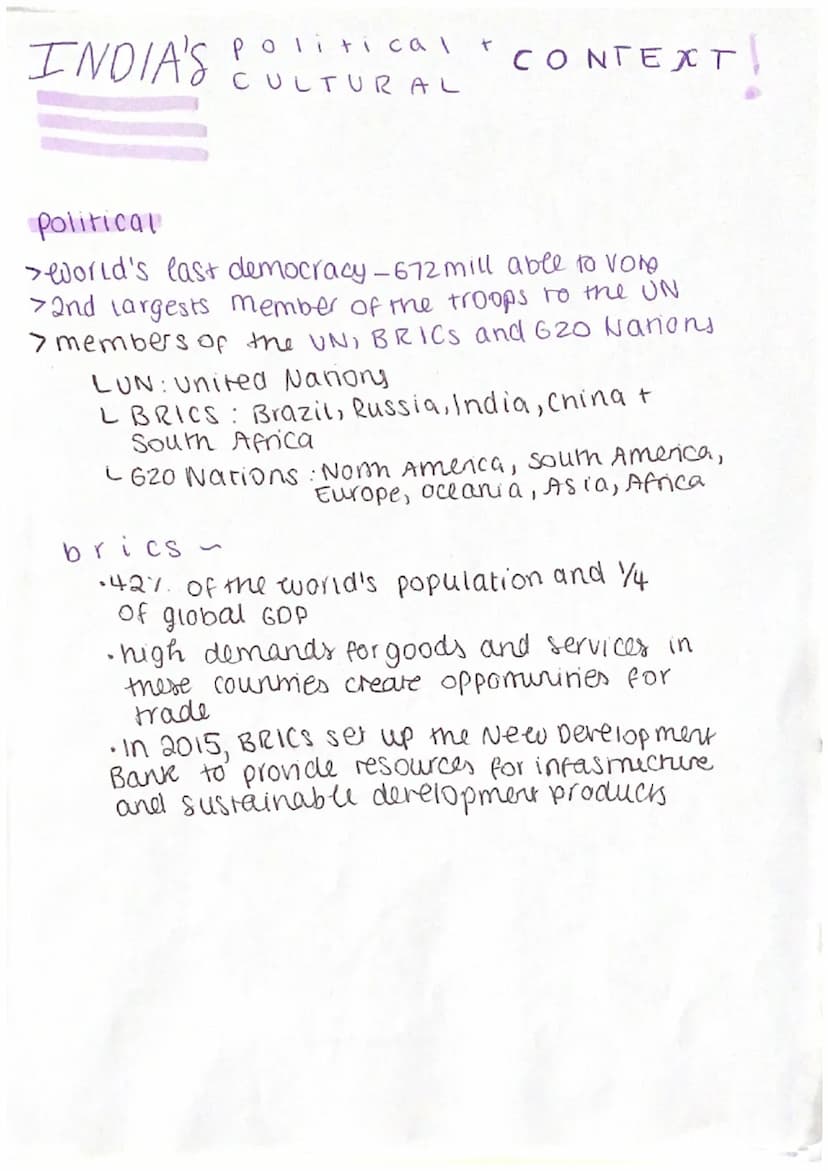 INDIA'S political + CONTEXT!
CULTURAL
political
>world's last democracy - 672 mill able to vote
>2nd largests member of the troops to the UN
>members of the UN, BRICS and G20 Nations
L UN: United Nations
L BRICS: Brazil, Russia, India, China +
South Africa
L G20 Nations: North America, South America,
Europe, Oceania, Asia, Africa
brics ~
·42% of the world's population and 1/4
of global GDP
·high demands for goods and services in
these countries create opportunities for
trade
·In 2015, BRICS set up the New Development
Bank to provide resources for infastructure
and sustainable development products